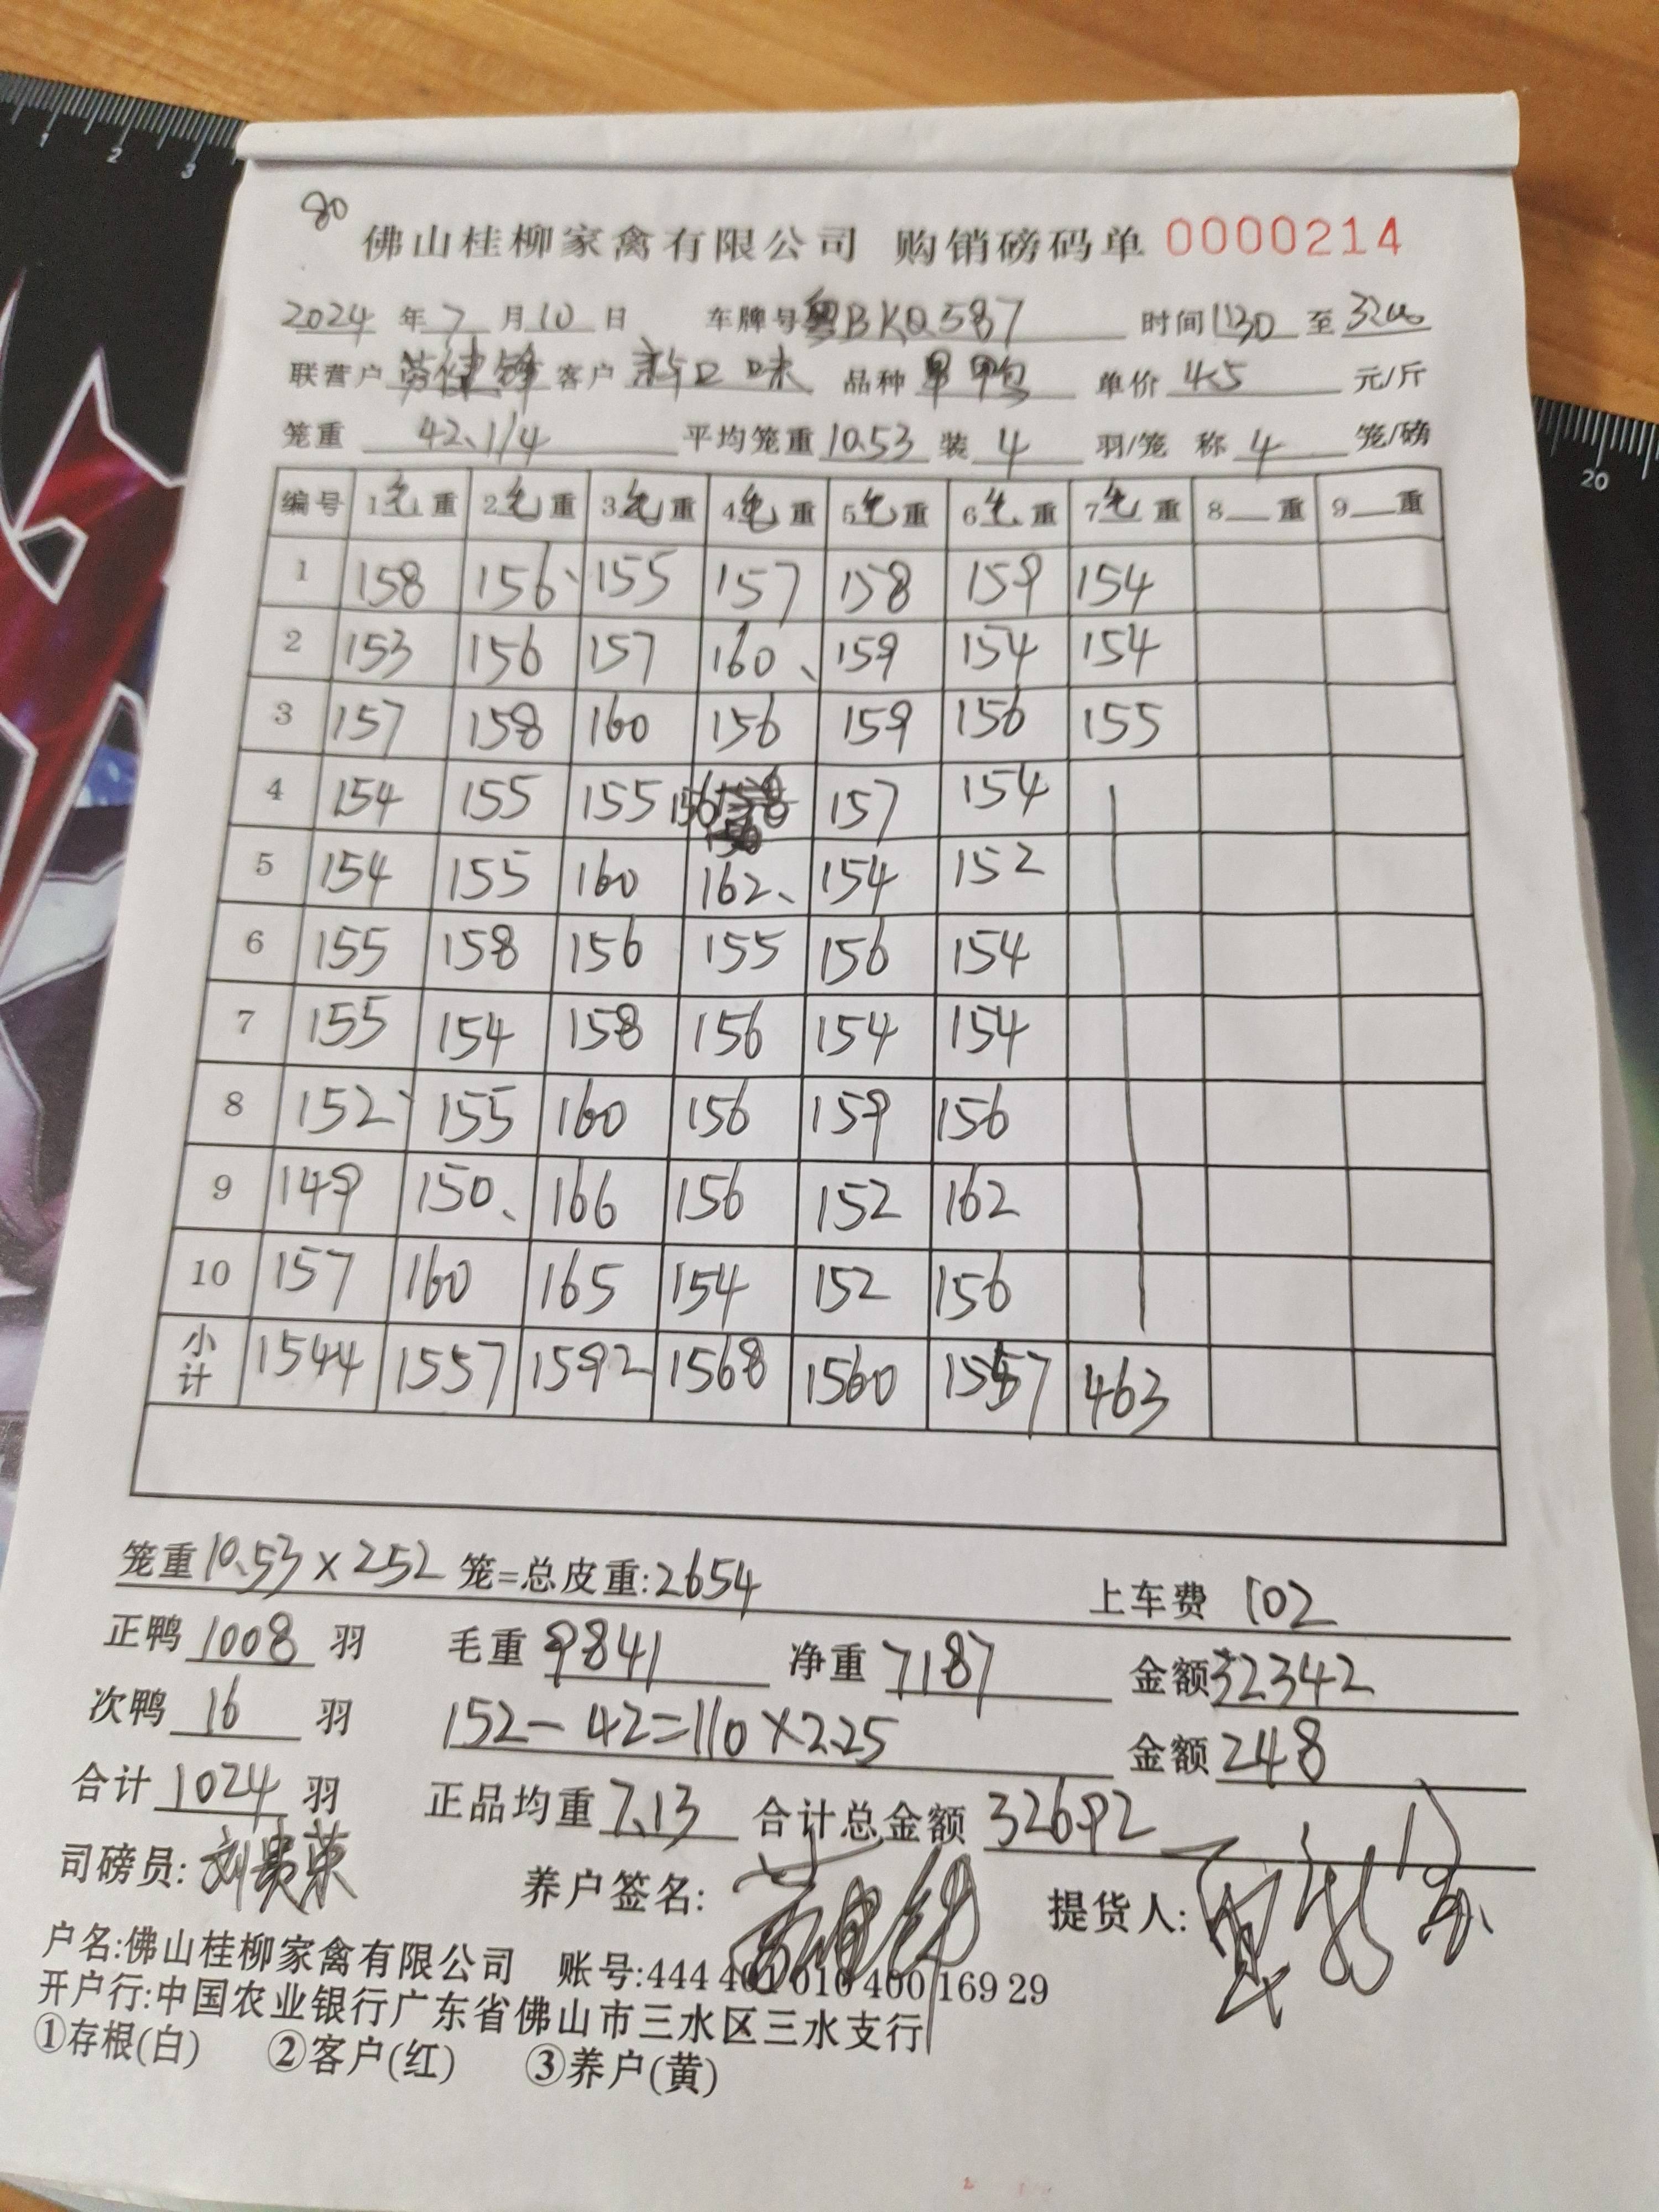 80
佛山桂柳家禽有限公司 购销磅码单 0000214
2024 年 7 月 10 日 车牌号 粤BKQ587 时间 1130 至
联营户 劳健锋 客户 新口味 品种 单价 4.5 元/斤
笼重 42.1/4 平均笼重 10.53 装 4 羽/笼 称 4 笼/磅
编号 1毛重 2毛重 3毛重 4毛重 5毛重 6毛重 7毛重 8__重 9__重
1 158 156 155 157 158 159 154
2 153 156 157 160 159 154 154
3 157 158 160 156 159 156 155
4 154 155 155 156 157 154
5 154 155 160 162 154 152
6 155 158 156 155 156 154
7 155 154 158 156 154 154
8 152 155 160 156 159 156
9 149 150 166 156 152 162
10 157 160 165 154 152 156
小计 1544 1557 1592 1568 1560 1557 463
笼重 10.53×252 笼=总皮重:2654 上车费 102
正鸭 1008 羽 毛重 9841 净重 7187 金额 32342
次鸭 16 羽 152-42=110×2.25 金额 248
合计 1024 羽 正品均重 7.13 合计总金额 32692
司磅员: 刘贵荣 养户签名: 提货人:
户名:佛山桂柳家禽有限公司 账号:444 401 010 400 169 29
开户行:中国农业银行广东省佛山市三水区三水支行
①存根(白) ②客户(红) ③养户(黄)